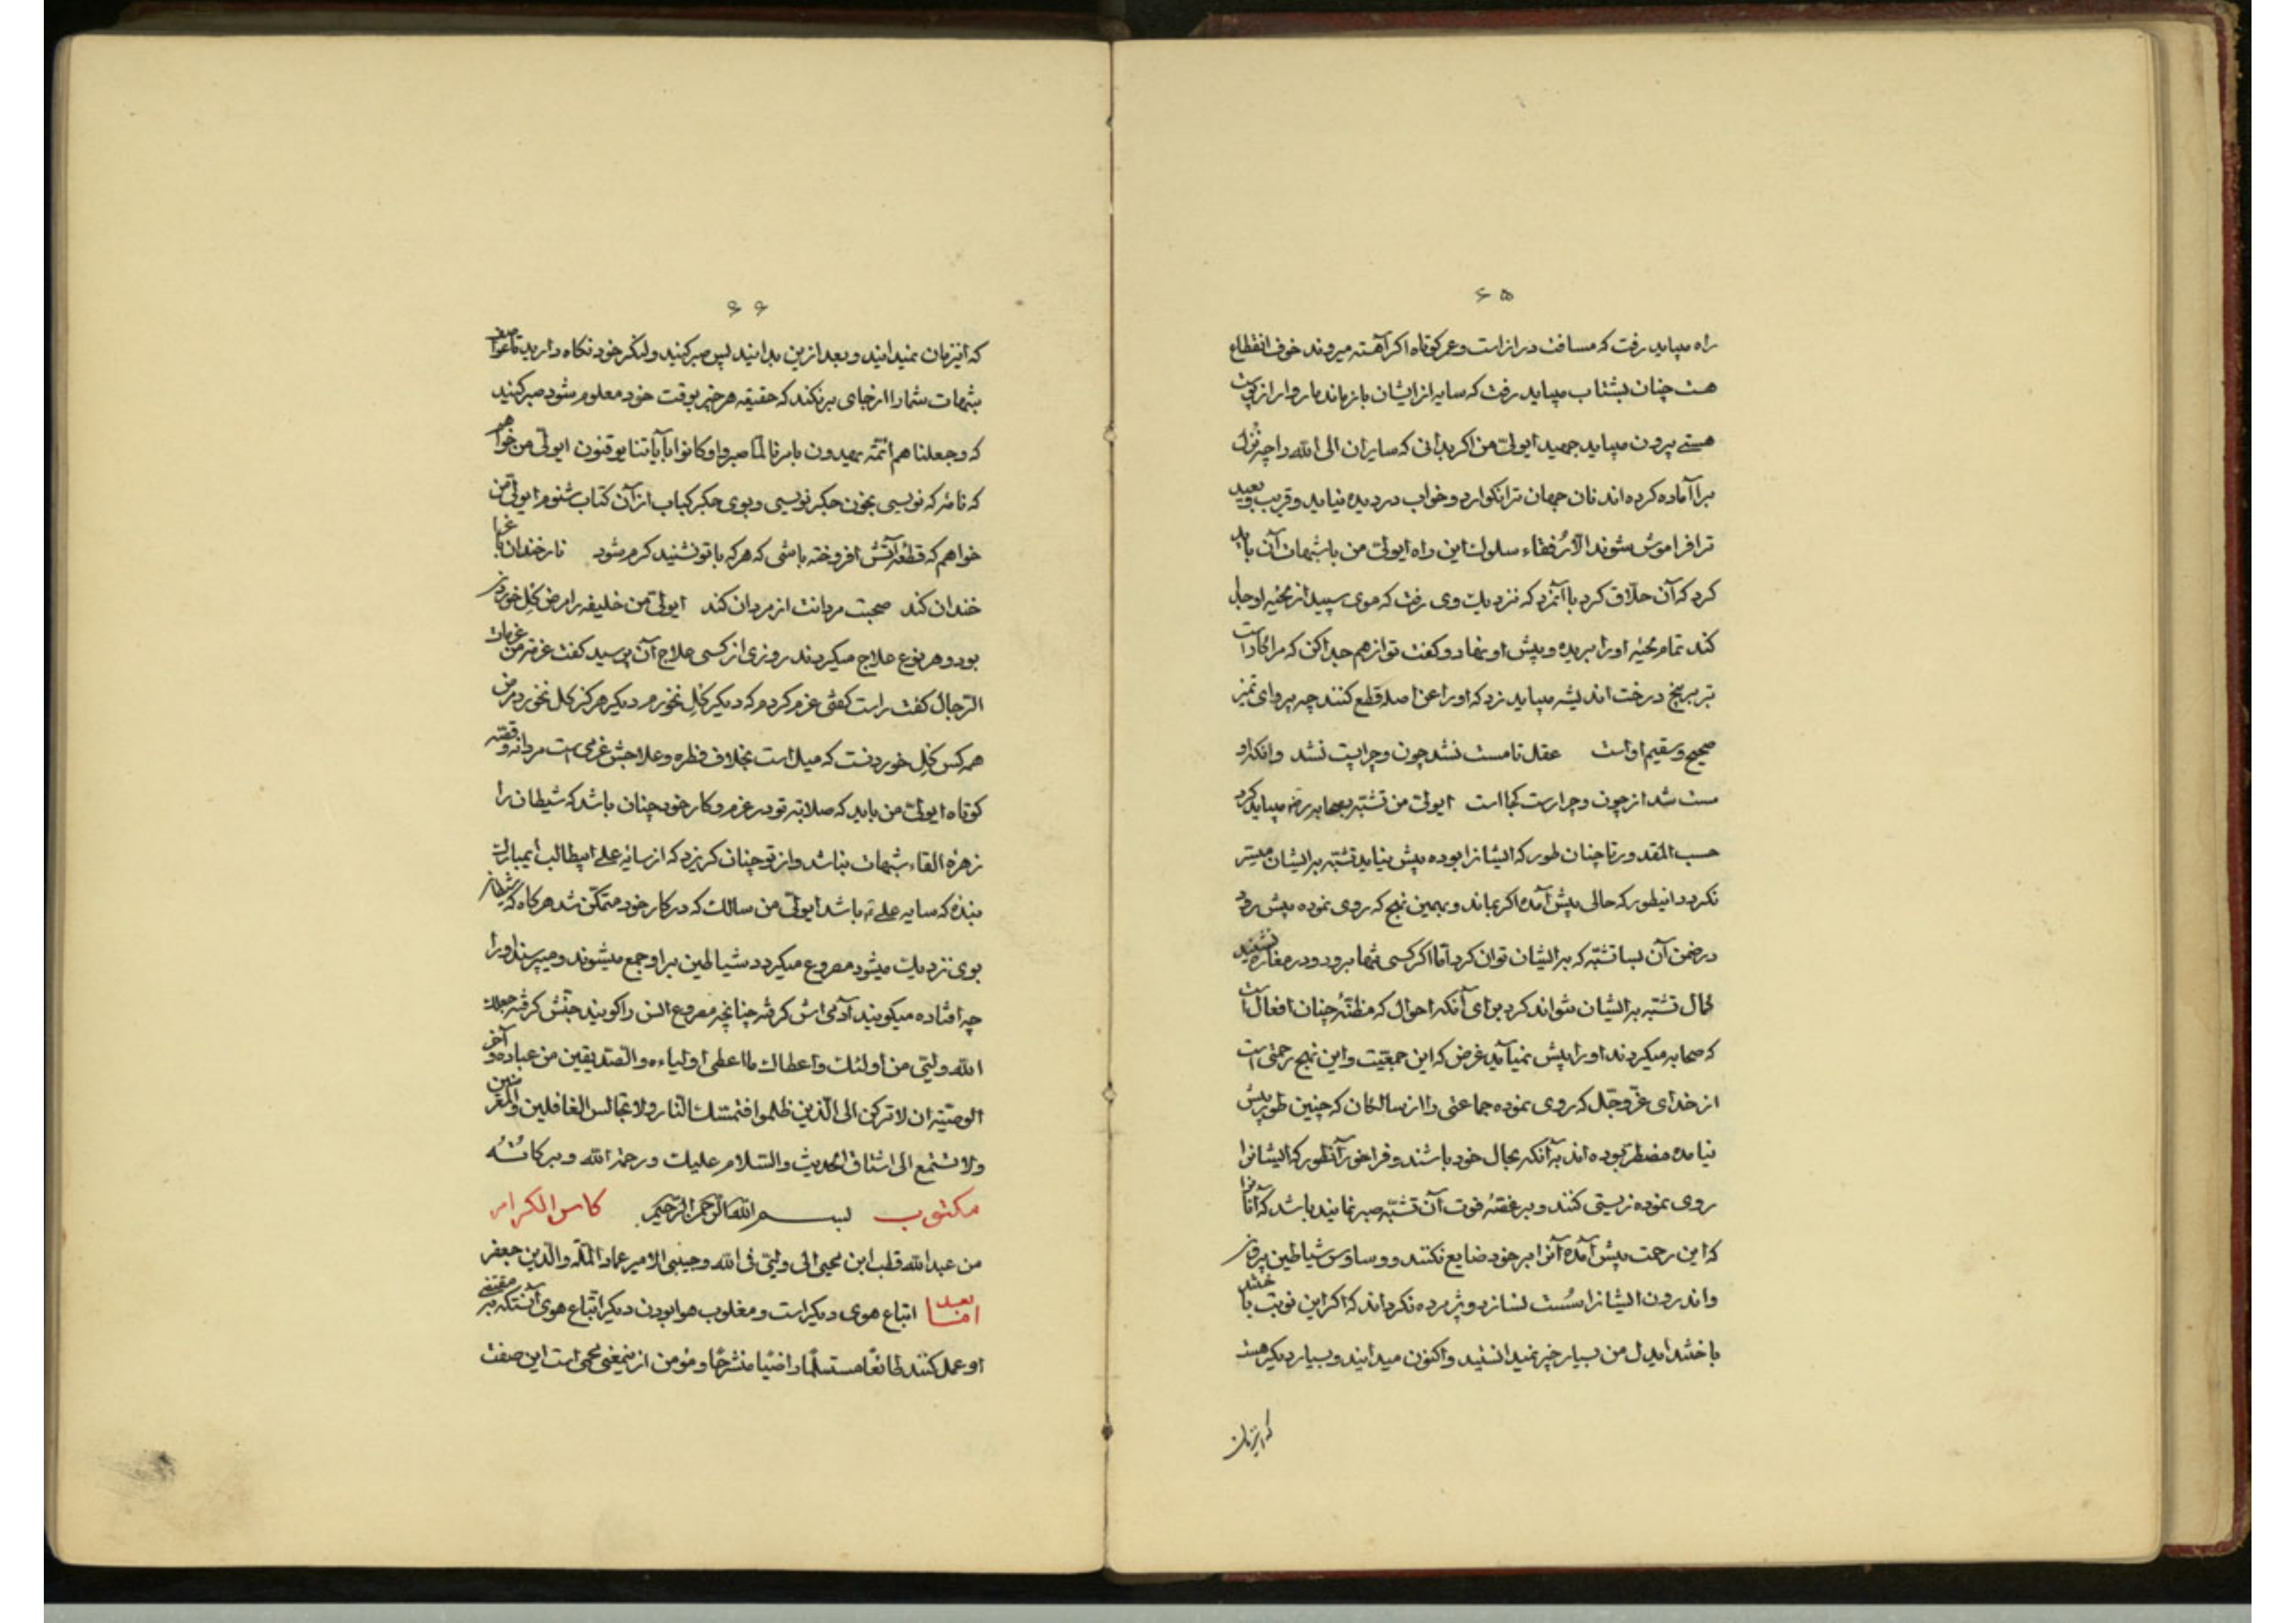 ۶۵
راه میباید رفت که مسافت دراز است و عمر کوتاه اکر آهسته میروند خوف انقطاع
هست چنان بشتاب میباید رفت که سایه از ایشان باز ماند مار وار از پوست
هستی بیرون میباید جهید ایولی من اکر بدانی که سایران الی الله را چه نزل
برا آماده کرده اند نان جهان ترا نکوارد و خواب در دیده نیاید و قریب و بعید
ترا فراموش شوند الا رفقاء سلوک این راه ایولی من با شبهات آن باید
کرد که آن حلاق کرد با آنمرد که نزدیک وی رفت که موی سپید از محیه او جدا
کند تمام محیه او را ببریده و پیش او نهاد و کفت تو از هم جدا کن که مرا کار است
تبر بر بیخ درخت اندیشه میباید زد که او را عن اصله قطع کنند چه پروای تمیز
صحیح و سقیم او است عقل تا مست نشد چون و چرا پست نشد وانکه او
مست شد از چون و چرا رست کجا است ایولی من تشبه بصحابه رضه میباید کرد
حسب المقدور تا چنان طور که ایشانرا بوده پیش نیاید تشبه بر ایشان میسر
نکردد اینطور که حالی پیش آمده اکر بماند و بهمین نهج که روی نموده پیش رود
در ضمن آن بسا تشبه که بر ایشان توان کرد اما اکر کسی تنها برود و در مغاره نشیند
کمال تشبه بر ایشان نتواند کرد برای آنکه احوال که مظنه چنان افعال است
که صحابه میکردند او را پیش نمیآید غرض که این جمعیت و این نهج رحمتی است
از خدای عز و جل که روی نموده جماعتی را از سالکان که چنین طور پیش
نیامده مضطر بوده اند به آنکه بحال خود باشند و فراخور آنطور که ایشانرا
روی نموده زیستی کنند و بر غصه فوت آن تشبه صبر نمایند باشد که آنانرا
که این رحمت پیش آمده آنرا بر خود ضایع نکنند و وساوس شیاطین بیرون
و اندرون ایشانرا سُست نسازد و پژمرده نکرداند که اکر این نوبت با خشد
با خشد ایدل من بسیار چیز نمیدانستید و اکنون میدانید و بسیار دیکر هست
که اینزمان
۶۶
که اینزمان نمیدانید و بعد ازین بدانید پس صبر کنید و لنکر خود نکاه دارید تا
شبهات شما را از جای بر نکند که حقیقه هر چیز بوقت خود معلوم شود صبر کنید
که و جعلنا هم ائمّه یهدون بامرنا لمّا صبروا و کانوا بآیاتنا یوقنون ایولی من خواهم
که نامه که نویسی بخون جکر نویسی و بوی جکر کباب از آن کتاب شنوم ایولی من
خواهم که قطعه آتش افروخته باشی که هر که با تو نشنید کرم شود نار خندان باغ را
خندان کند صحبت مردانت از مردان کند ایولی من خلیفه را مرض کِل خوردن
بود و هر نوع علاج میکردند روزی از کسی علاج آن پرسید کفت عزمة من عزمات
الرّجال کفت راست کفتی عزم کردم که دیکر کِل نخورم دیکر هرکز کل نخورد مرض
همه کس کِل خوردنست که میل است بخلاف فطره و علاجش عزمی است مردانه و قصّه
کوتاه ایولی من باید که صلابه تو در عزم و کار خود چنان باشد که شیطان را
زهره القاء شبهات نباشد و از تو چنان کریزد که از سایه علی ابیطالب ایمبارک
بنده که سایه علی ته باشد ایولی من سالک که در کار خود متمکّن شد هر کاه که شیطان
بوی نزدیک میشود مصروع میکردد شیاطین بر او جمع میشوند و میپرسند او را
چه افتاده میکویند آدمی اش کرفته چنانچه مصروع انس را کویند جنّش کرفته جعلک
الله ولیّی من اولئک و اعطاک ما اعطی اولیاءه و الصّدیقین من عباده و آخر
الوصیّة ان لا ترکن الی الّذین ظلموا فتمسّک النّار و لا تجالس الغافلین و
و لا تستمع الی اشتاق الحدیث و السّلام علیک و رحمة الله و برکاتُه
مکتوب بسم الله الرّحمن الرّحیم کاس الکرام
من عبدالله قطب ابن محیی الی ولیّی فی الله و حبیبی الامیر عماد الملّة و الّدین جعفر
امّا بعد اتباع هوی دیکر است و مغلوب هوا بودن دیکر اتّباع هوی آنستکه بر مقتضی
او عمل کنند طائعًا مستسلمًا راضیًا منشرحًا و مؤمن از اینمعنی محمی است این صفت